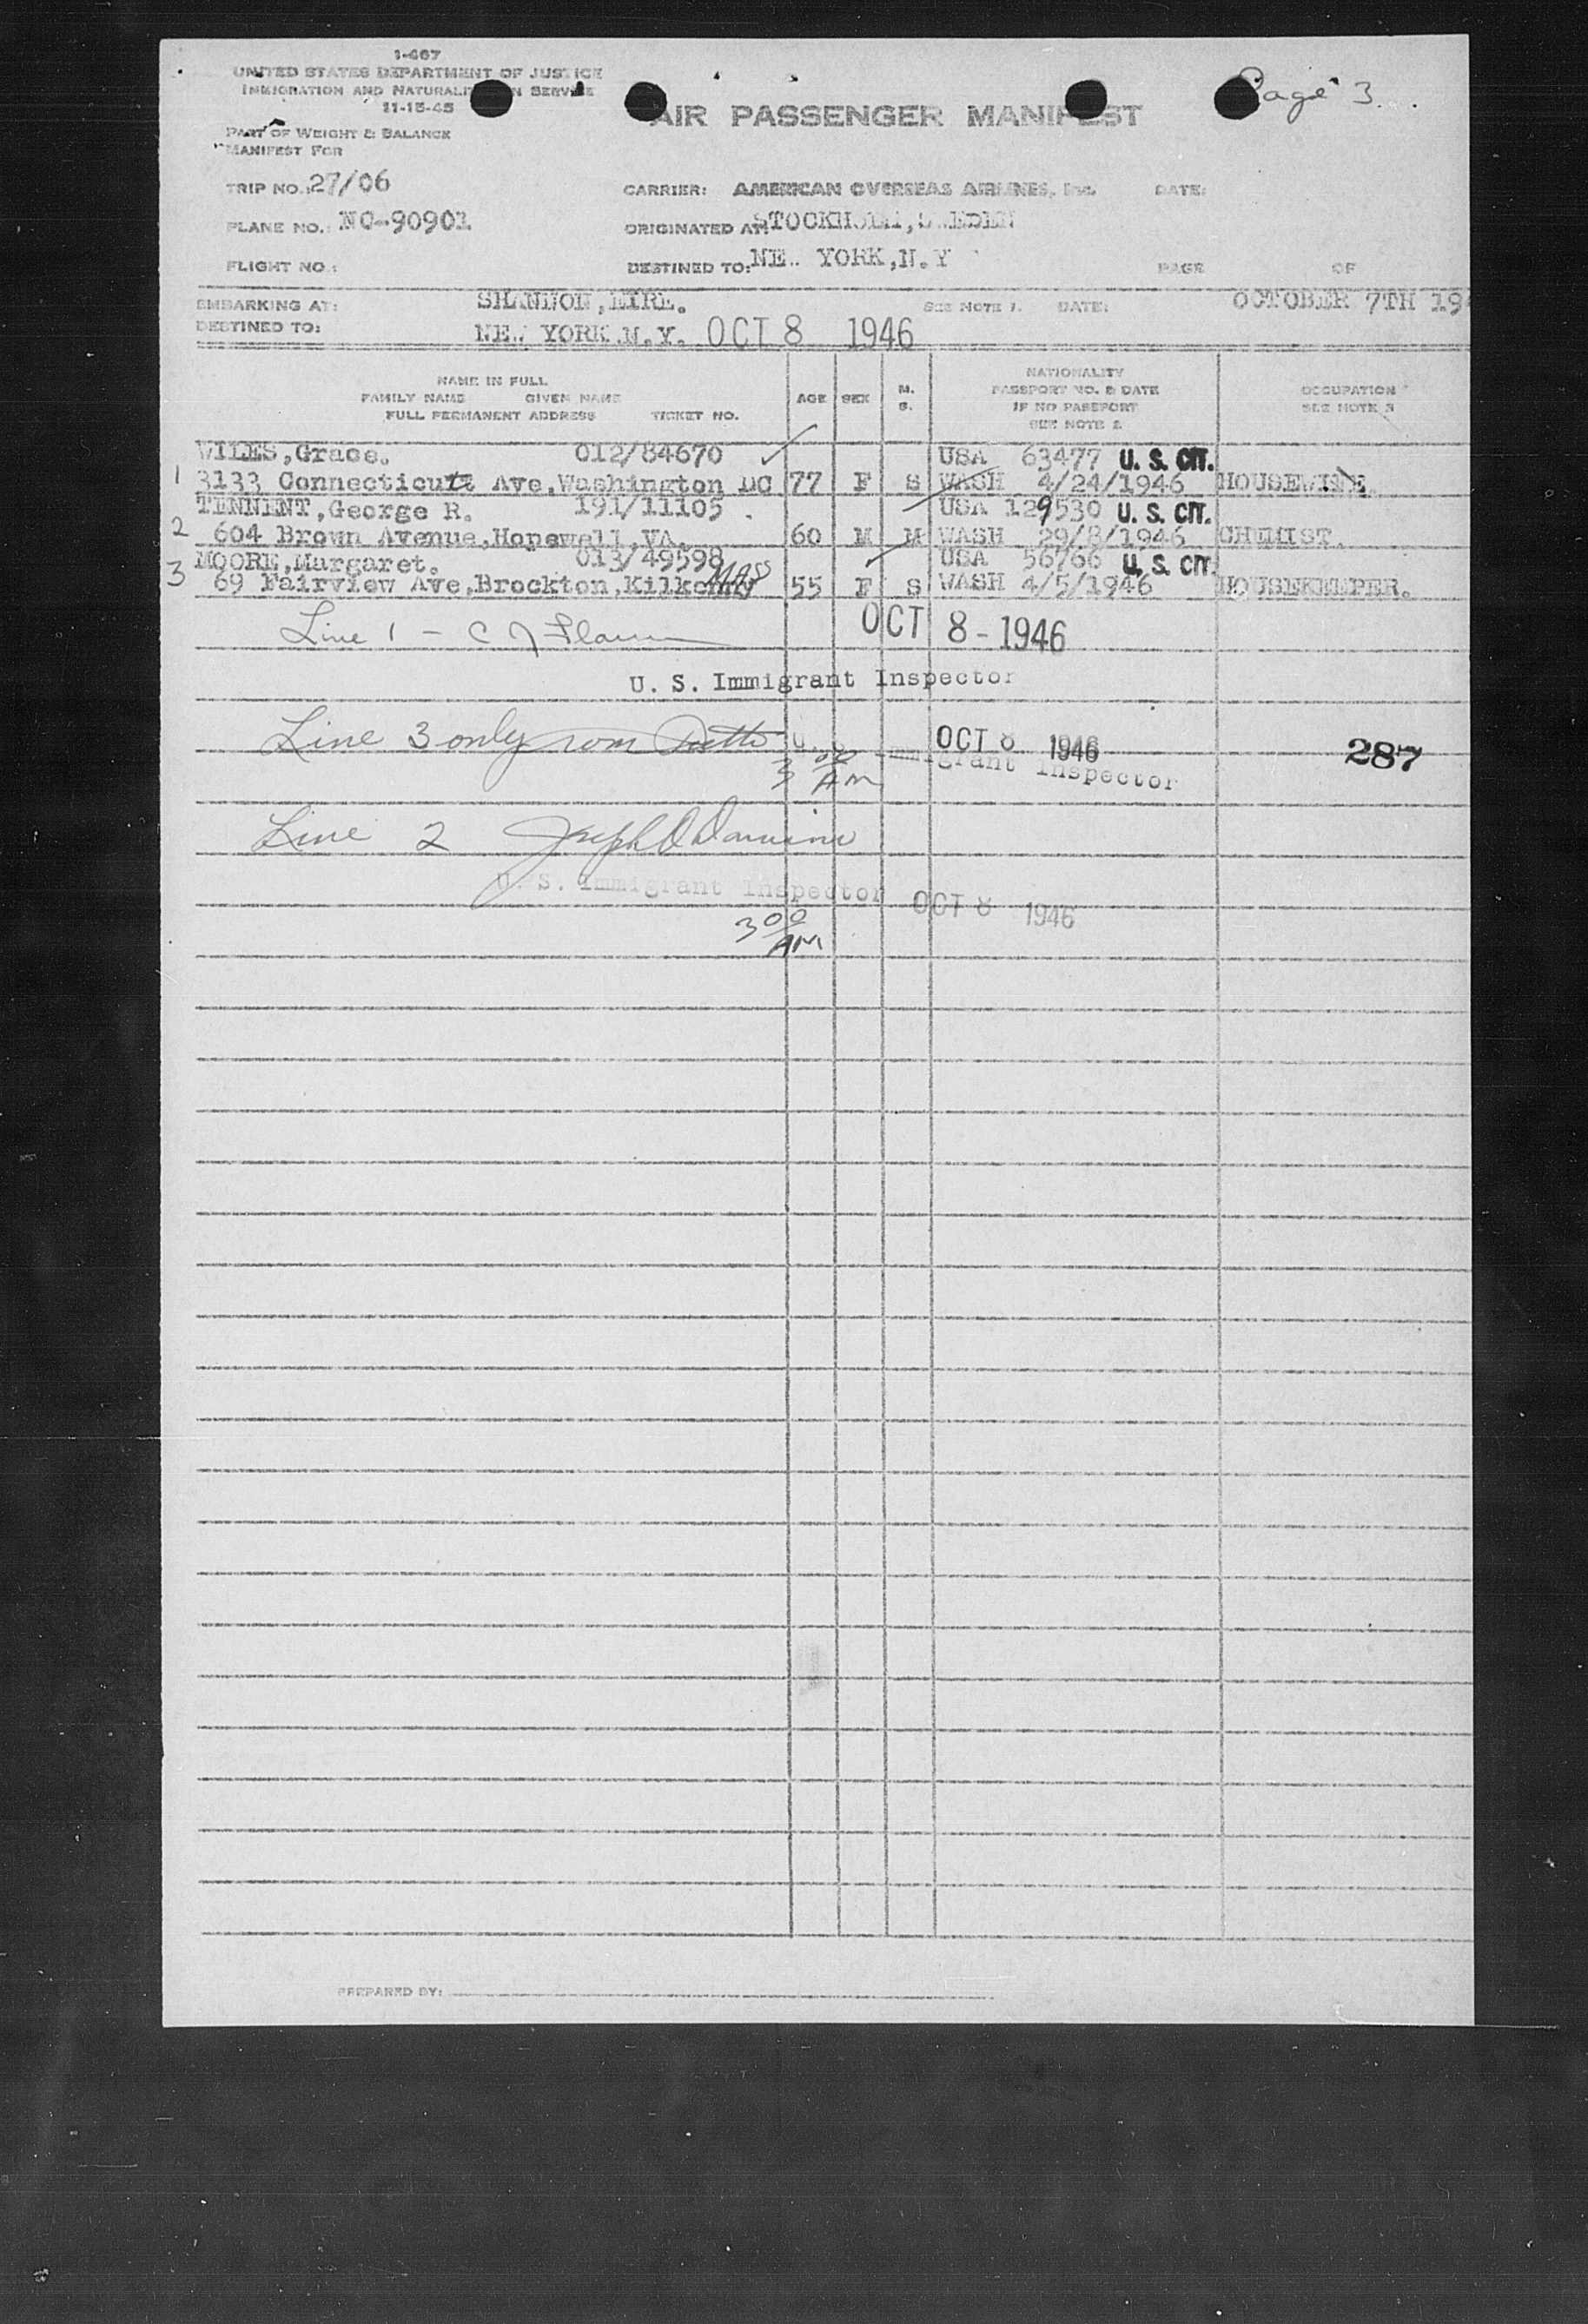 1-467
UNITED STATES DEPARTMENT OF JUSTICE
IMMIGRATION AND NATURALI N SERVICE
11-15-45
Page 3.
AIR PASSENGER MANIFEST
PART OF WEIGHT & BALANCE
MANIFEST FOR
TRIP NO.: 27/06 CARRIER: AMERICAN OVERSEAS AIRLINES, Inc. DATE:
PLANE NO.: NC-90901 ORIGINATED AT: STOCKHOLM, SWEDEN
FLIGHT NO.: DESTINED TO: NEW YORK, N.Y PAGE OF
EMBARKING AT: SHANNON, EIRE. SEE NOTE 1. DATE: OCTOBER 7TH 19
DESTINED TO: NEW YORK.N.Y. OCT 8 1946
NAME IN FULL
FAMILY NAME GIVEN NAME
FULL PERMANENT ADDRESS TICKET NO.
AGE SEX M. S.
NATIONALITY
PASSPORT NO. & DATE
IF NO PASSPORT
SEE NOTE 2
OCCUPATION
SEE NOTE 3
WILES, Grace. 012/84670 USA 63477 U. S. CIT.
1 3133 Connecticutt Ave, Washington DC 77 F S WASH 4/24/1946 HOUSEWIFE.
TENNENT, George R. 191/11105 USA 129530 U. S. CIT.
2 604 Brown Avenue, Hopewell, VA. 60 M M WASH 29/8/1946 CHEMIST.
MOORE, Margaret. 013/49598 USA 56766 U. S. CIT.
3 69 Fairview Ave, Brockton, Kilkenny MASS 55 F S WASH 4/5/1946 HOUSEKEEPER.
Line 1 - C J OCT 8 - 1946
U. S. Immigrant Inspector
Line 3 only OCT 8 1946 287
Immigrant Inspector
3 00 AM
Line 2 Joseph
U. S. Immigrant Inspector OCT 8 1946
3 00 AM
PREPARED BY: